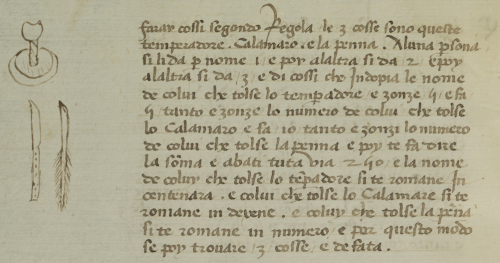 faray cossi segondo Regola le 3 cosse sono queste
temperadore. Calamaro. e la penna. Aluna psona
si li da p nome 1 / e poy alaltra si da 2 / e poy
alaltra si da / 3 / e di cossi che Indopia le nome
de colui che tolse lo tempadore e zonze 5 / e fa
5 tanto e zonze lo numero de colui che tolse
lo Calamaro e fa 10 tanto e zonzi lo numero
de colui che tolse la penna e poy te fa dire
la soma e abati tuta via 250 / e la nome
de coluy che tolse lo tepadore si te romane In
centenara. e colui che tolse lo Calamare si te
romane in desene. e coluy che tolse la pena
si te romane in numero / e per questo modo
se poy trouare / 3 / cosse / e de fata.